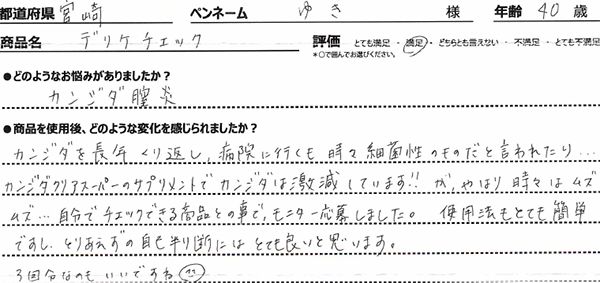 都道府県 宮崎 ペンネーム ゆき 様 年齢 40 歳
商品名 デリケチェック 評価 とても満足・満足・どちらとも言えない・不満足・とても不満足
*○で囲んでお選びください。
●どのようなお悩みがありましたか?
カンジダ膣炎
●商品を使用後、どのような変化を感じられましたか?
カンジダを長年くり返し、病院に行くも時々細菌性のものだと言われたり…
カンジダクリアスーパーのサプリメントでカンジダは激減しています!!が、やはり時々はムズ
ムズ…自分でチェックできる商品との事で、モニター応募しました。 使用法もとても簡単
ですし、とりあえずの自己判断にはとても良いと思います。
3回分なのもいいですね